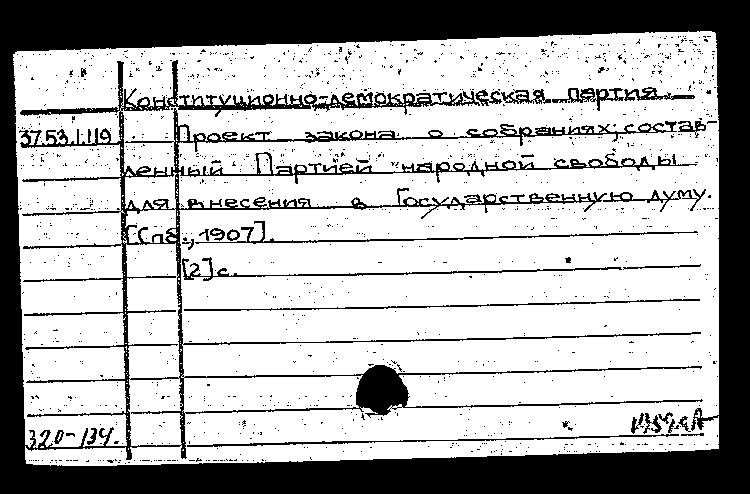 Конституционно-демократическая партия
37.53.1.119 Проект закона о собраниях, состав-
ленный Партией народной свободы
для внесения в Государственную думу.
[Спб., 1907].
[2] с.
320-134.